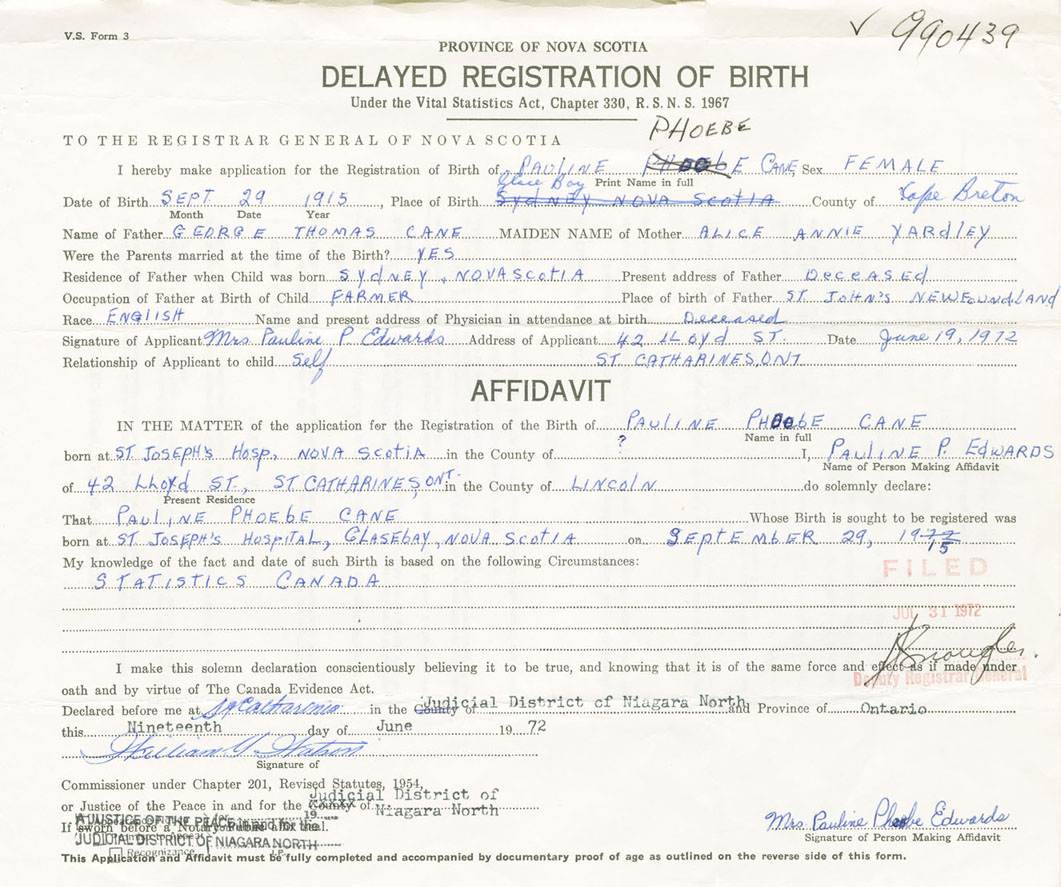 V.S. Form 3
✓ 990439
PROVINCE OF NOVA SCOTIA
DELAYED REGISTRATION OF BIRTH
Under the Vital Statistics Act, Chapter 330, R.S.N.S. 1967
PHOEBE
TO THE REGISTRAR GENERAL OF NOVA SCOTIA
I hereby make application for the Registration of Birth of PAULINE PHOEbE CANE, Sex FEMALE
Glace Bay Print Name in full
Date of Birth SEPT 29 1915, Place of Birth SYdNEY NOVA SCOTIA County of Cape Breton
Month Date Year
Name of Father GEORGE THOMAS CANE MAIDEN NAME of Mother ALICE ANNIE YARDLEY
Were the Parents married at the time of the Birth? YES
Residence of Father when Child was born SYdNEY, NOVA SCOTIA Present address of Father DECEASEd
Occupation of Father at Birth of Child FARMER Place of birth of Father ST. JOHN'S NEWFOUNdLAND
Race ENGLISH Name and present address of Physician in attendance at birth Deceased
Signature of Applicant Mrs Pauline P. Edwards Address of Applicant 42 LLOYd ST. Date June 19, 1972
Relationship of Applicant to child Self ST. CATHARINES, ONT
AFFIDAVIT
IN THE MATTER of the application for the Registration of the Birth of PAULINE PHOEbE CANE
Name in full
born at ST JOSEPH'S HOSP, NOVA SCOTIA in the County of ? I, PAULINE P. EdWARDS
Name of Person Making Affidavit
of 42 LLOYd ST., ST CATHARINES, ONT. in the County of LINCOLN do solemnly declare:
Present Residence
That PAULINE PHOEbE CANE Whose Birth is sought to be registered was
born at ST. JOSEPH'S HOSPITAL, GLASEBAY, NOVA SCOTIA on SEPTEMBER 29, 1972
15
My knowledge of the fact and date of such Birth is based on the following Circumstances:
STATISTICS CANADA
FILED
JUL 31 1972
I make this solemn declaration conscientiously believing it to be true, and knowing that it is of the same force and effect as if made under
oath and by virtue of The Canada Evidence Act.
Deputy Registrar General
Declared before me at St Catharines in the County of Judicial District of Niagara North and Province of Ontario
this Nineteenth day of June 1972
Signature of
Commissioner under Chapter 201, Revised Statutes, 1954,
or Justice of the Peace in and for the County of Judicial District of
Niagara North
19
If sworn before a Notary Public affix the seal.
A JUSTICE OF THE PEACE IN AND FOR THE
JUDICIAL DISTRICT OF NIAGARA NORTH
Recognizance
Mrs. Pauline Phoebe Edwards
Signature of Person Making Affidavit
This Application and Affidavit must be fully completed and accompanied by documentary proof of age as outlined on the reverse side of this form.